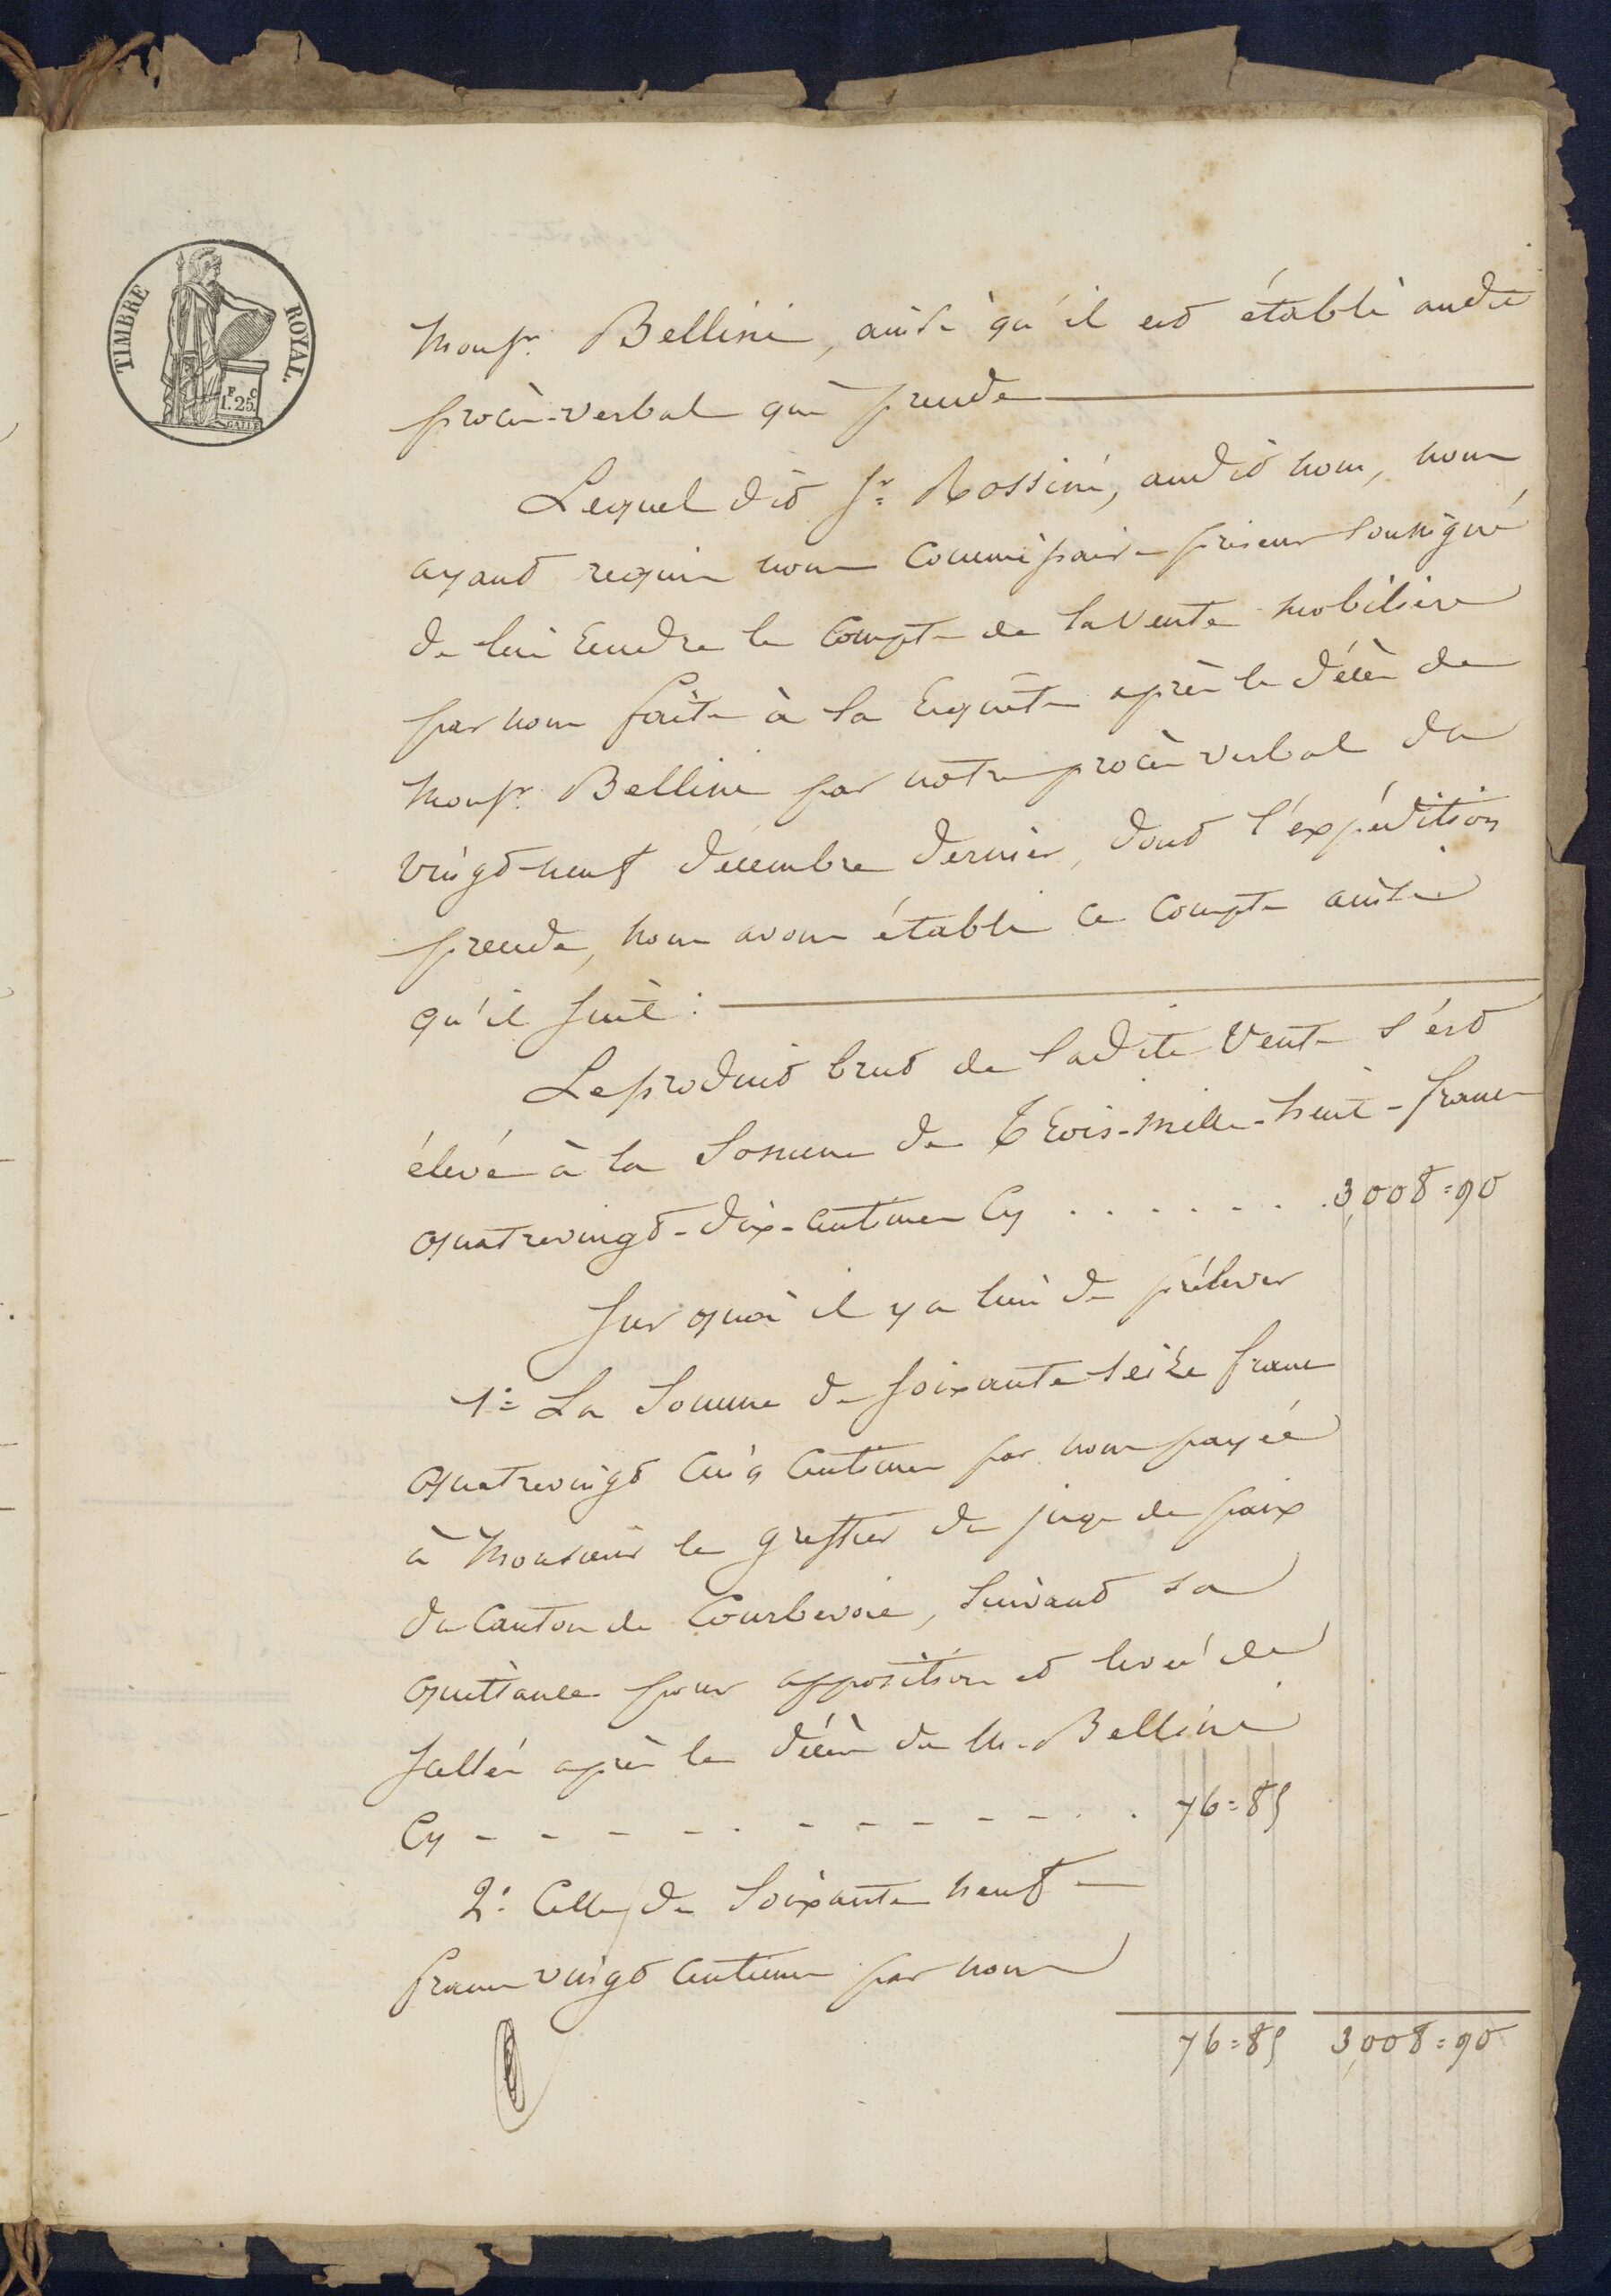 TIMBRE ROYAL.
F. C
1.25.
Monsr. Bellini, ainsi qu'il est établi audit
procès-verbal qui précède
Lequel dit Sr. Rossini, audit nom, nous
ayant requis nous Commissaire priseur soussigné
de lui rendre le compte de la vente mobilière
par nous faite à sa requête après le décès de
Monsr. Bellini par notre procès verbal du
vingt-neuf décembre dernier, dont l'expédition
précède, nous avons établi ce compte ainsi
qu'il suit :
Le produit brut de ladite vente s'est
élevé à la Somme de Trois-mille-huit-francs
quatrevingt-dix-centimes Cy . . . . . . . 3,008=90
Sur quoi il y a lieu de prélever
1° La Somme de soixante seize francs
quatrevingt cinq centimes par nous payée
à Monsieur le greffier du juge de paix
du Canton de Courbevoie, suivant sa
quittance pour apposition et levée de
scellés après le décès de M. Bellini
Cy - - - - . - - - - - . . 76=85
2° Celle de Soixante neuf
francs vingt centimes par nous
76=85 3,008=90